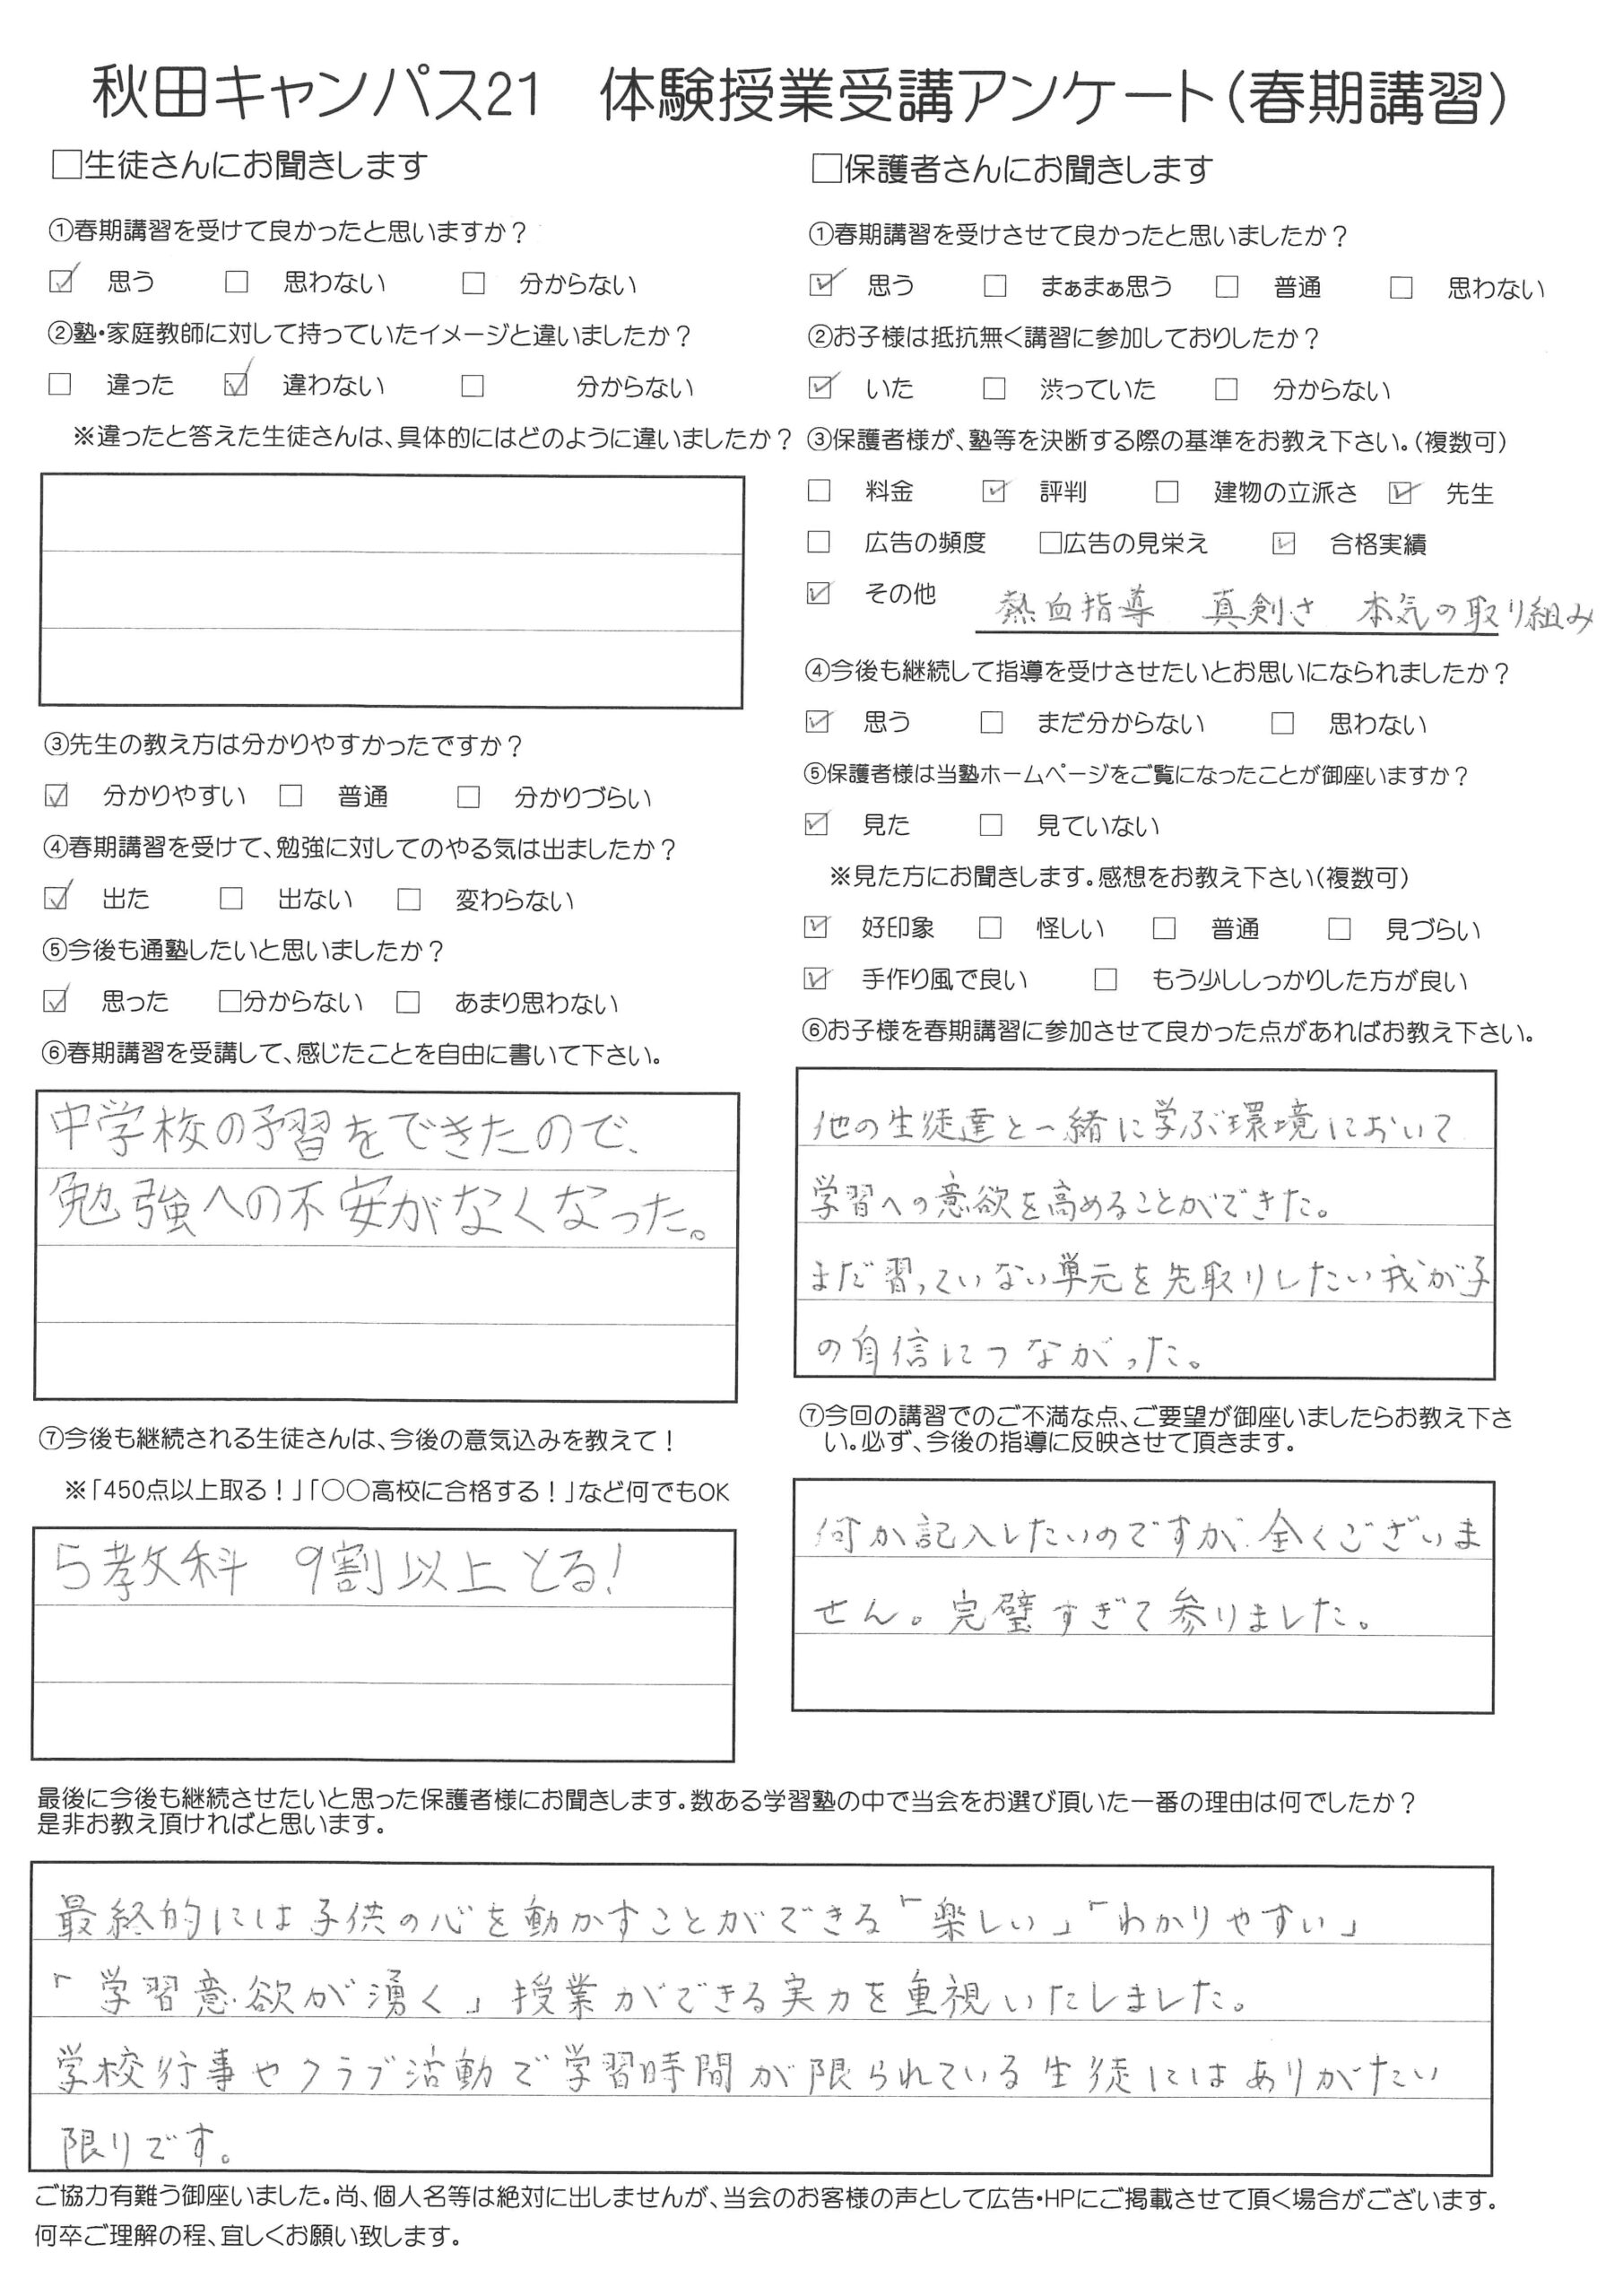 秋田キャンパス21　体験授業受講アンケート（春期講習）
□生徒さんにお聞きします
①春期講習を受けて良かったと思いますか？
☑ 思う □ 思わない □ 分からない
②塾・家庭教師に対して持っていたイメージと違いましたか？
□ 違った ☑ 違わない □ 分からない
※違ったと答えた生徒さんは、具体的にはどのように違いましたか？
③先生の教え方は分かりやすかったですか？
☑ 分かりやすい □ 普通 □ 分かりづらい
④春期講習を受けて、勉強に対してのやる気は出ましたか？
☑ 出た □ 出ない □ 変わらない
⑤今後も通塾したいと思いましたか？
☑ 思った □分からない □ あまり思わない
⑥春期講習を受講して、感じたことを自由に書いて下さい。
中学校の予習をできたので、
勉強への不安がなくなった。
⑦今後も継続される生徒さんは、今後の意気込みを教えて！
※「450点以上取る！」「○○高校に合格する！」など何でもOK
5教科 9割以上とる!
□保護者さんにお聞きします
①春期講習を受けさせて良かったと思いましたか？
☑ 思う □ まぁまぁ思う □ 普通 □ 思わない
②お子様は抵抗無く講習に参加しておりしたか？
☑ いた □ 渋っていた □ 分からない
③保護者様が、塾等を決断する際の基準をお教え下さい。（複数可）
□ 料金 ☑ 評判 □ 建物の立派さ ☑ 先生
□ 広告の頻度 □広告の見栄え ☑ 合格実績
☑ その他 熱血指導 真剣さ 本気の取り組み
④今後も継続して指導を受けさせたいとお思いになられましたか？
☑ 思う □ まだ分からない □ 思わない
⑤保護者様は当塾ホームページをご覧になったことが御座いますか？
☑ 見た □ 見ていない
※見た方にお聞きします。感想をお教え下さい（複数可）
☑ 好印象 □ 怪しい □ 普通 □ 見づらい
☑ 手作り風で良い □ もう少ししっかりした方が良い
⑥お子様を春期講習に参加させて良かった点があればお教え下さい。
他の生徒達と一緒に学ぶ環境において
学習への意欲を高めることができた。
まだ習っていない単元を先取りしたい我が子
の自信につながった。
⑦今回の講習でのご不満な点、ご要望が御座いましたらお教え下さ
い。必ず、今後の指導に反映させて頂きます。
何か記入したいのですが、全くございま
せん。完璧すぎて参りました。
最後に今後も継続させたいと思った保護者様にお聞きします。数ある学習塾の中で当会をお選び頂いた一番の理由は何でしたか？
是非お教え頂ければと思います。
最終的には子供の心を動かすことができる「楽しい」「わかりやすい」
「学習意欲が湧く」授業ができる実力を重視いたしました。
学校行事やクラブ活動で学習時間が限られている生徒にはありがたい
限りです。
ご協力有難う御座いました。尚、個人名等は絶対に出しませんが、当会のお客様の声として広告・HPにご掲載させて頂く場合がございます。
何卒ご理解の程、宜しくお願い致します。